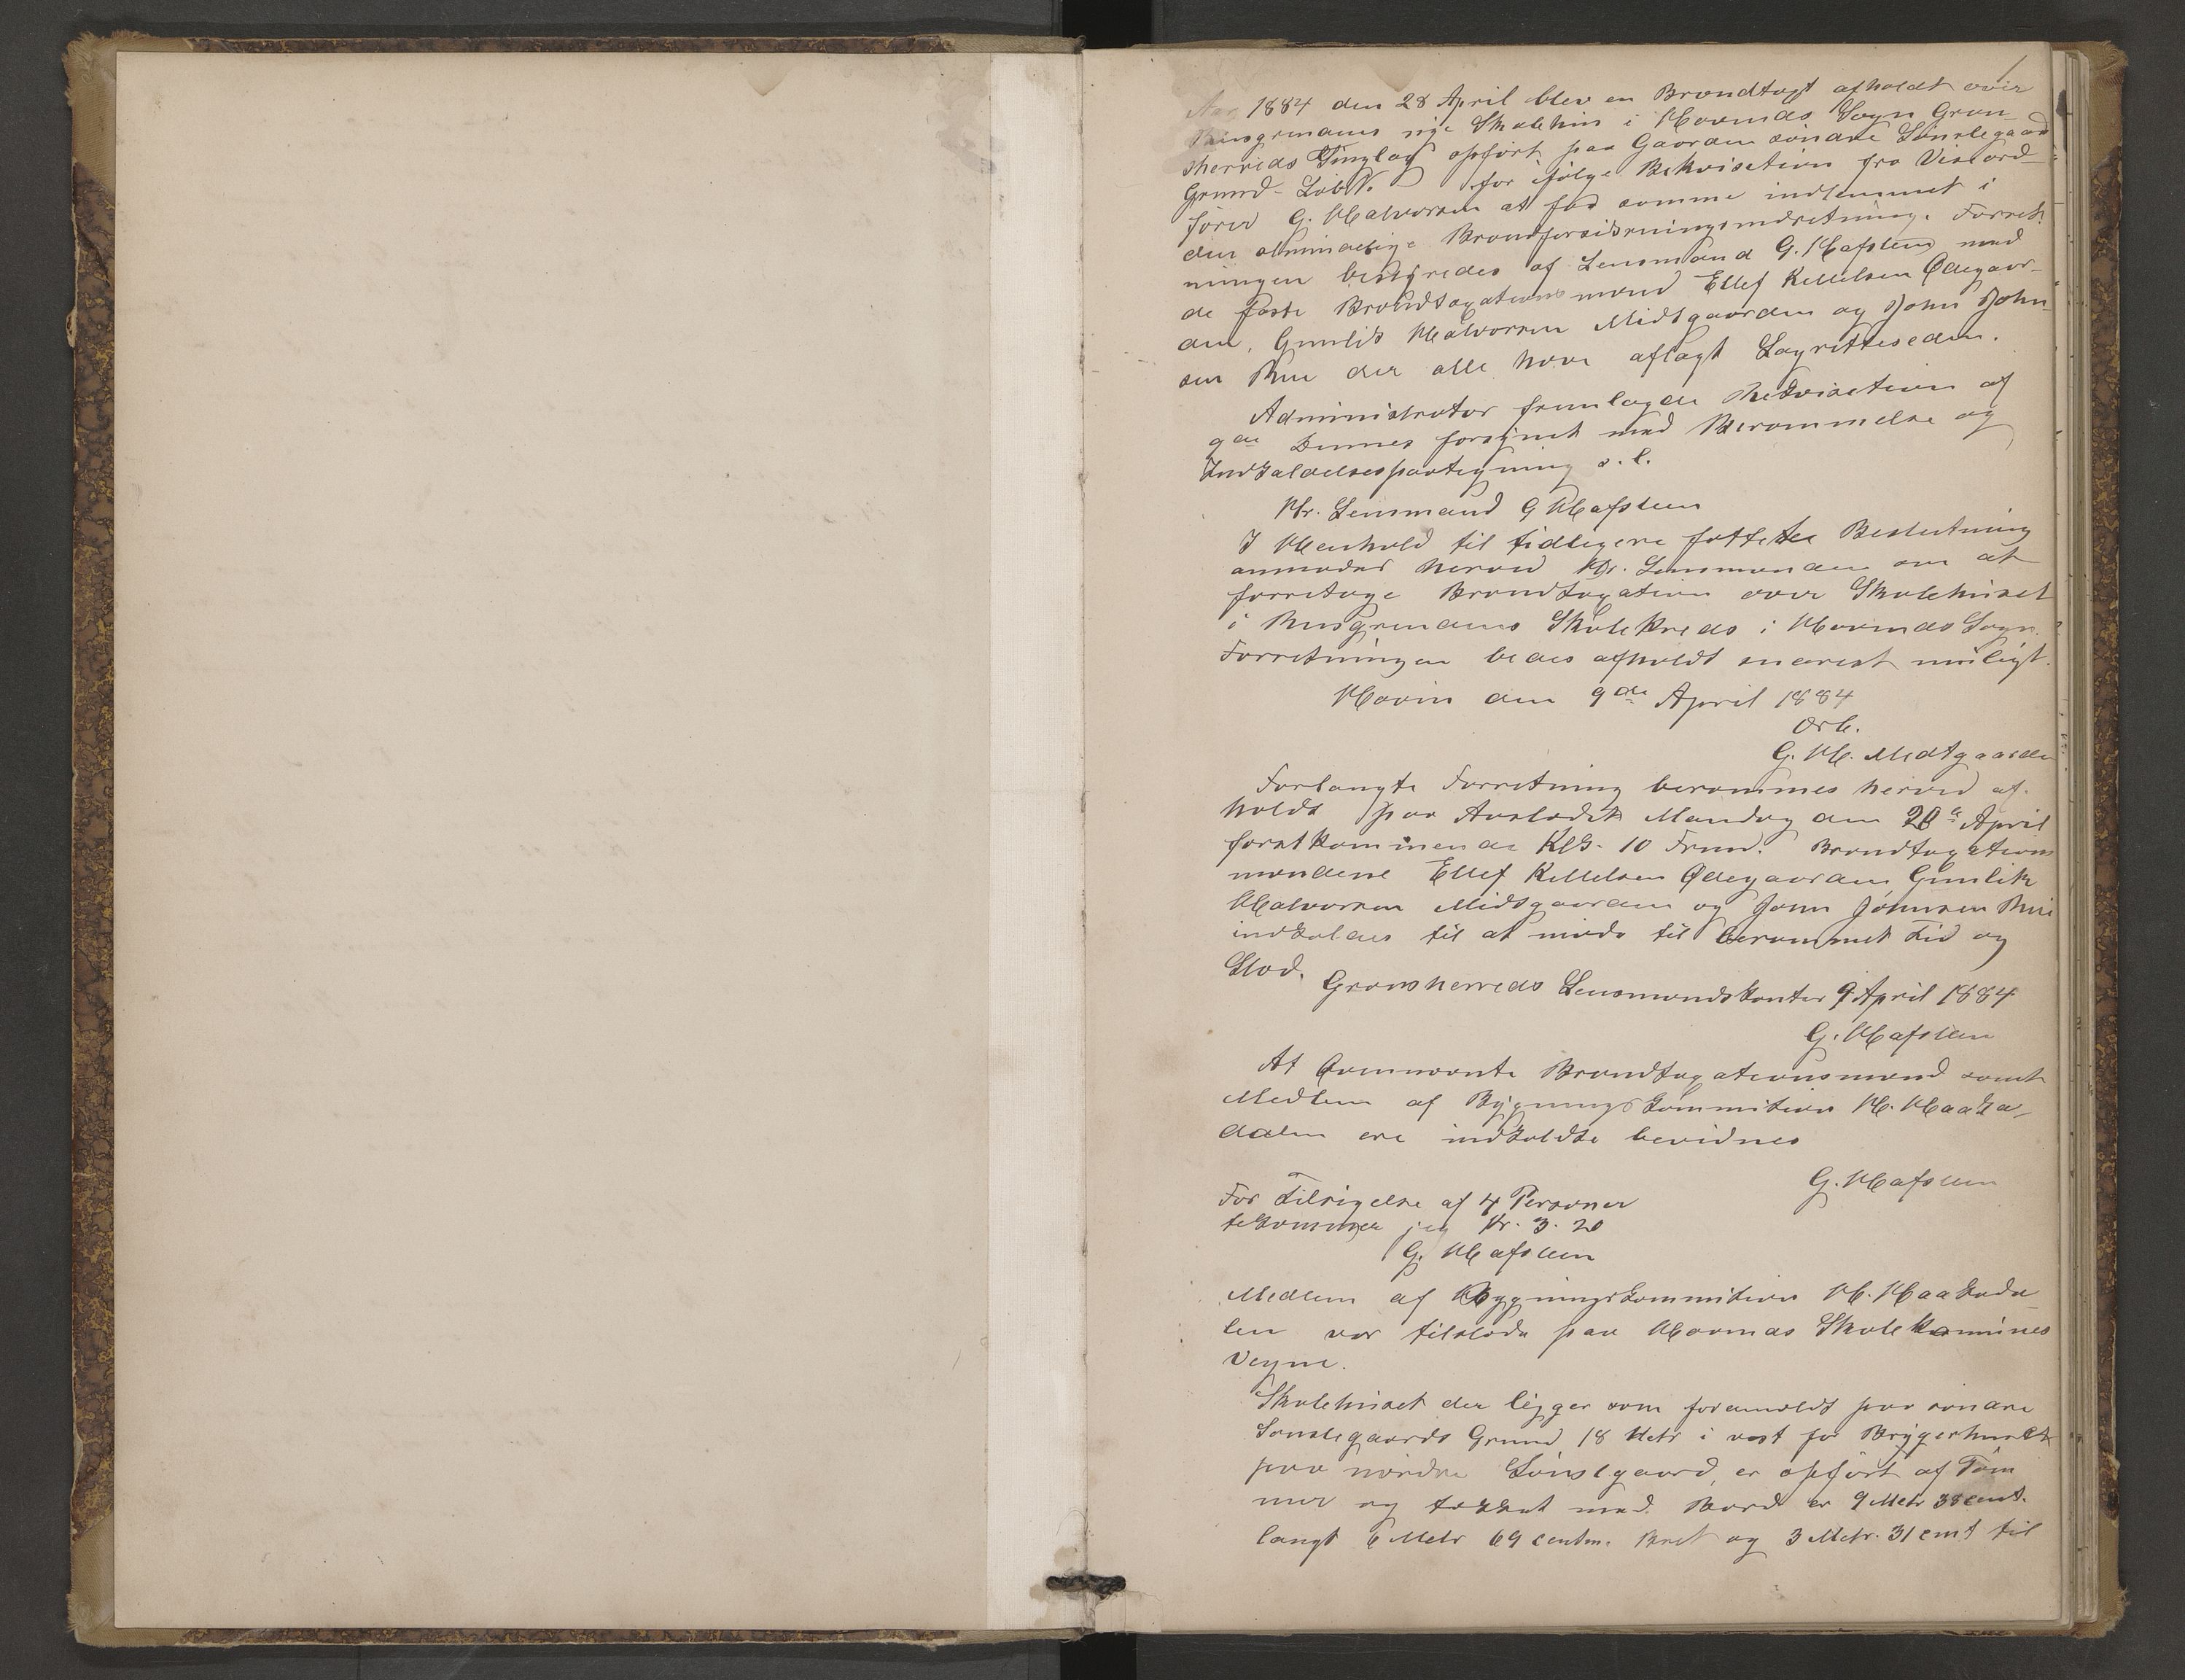 1
Aar 1884 den 28 April blev en Brandtaxt afholdt over
Rusgrendens nye Skolehus i Hovinds Sogn Gran-
sherreds Tinglag opført paa Gaarden søndre Sønslegaard
Grund- Løb N. for følge Rekvisition fra Viseord-
fører G. Halvorsen at faa samme indlemmet i
den almindelige Brandforsikringsindretning. Forret-
ningen bestyredes af Lensmand G. Hafsteen med
de faste Brandtaxationsmænd Ellef Kittelsen Ødegaar-
den, Gunlik Halvorsen Midtgaarden og John John-
sen Rue der alle have aflagt Lagretteseden.
Administrator fremlagde Rekvisition af
9de Dennes forsynet med Berammelse og
Indkaldelsespaategning s. l.
Hr. Lensmand G Hafsteen
I Henhold til tidligere fattede Beslutning
anmodes herved Hr. Lensmanden om at
foretage Brandtaxation over Skolehuset
i Rusgrendens Skolekreds i Hovinds Sogn.
Forretningen bedes afholdt snarest muligt.
Hovin den 9de April 1884
Ørb.
G. H. Midtgaarden
Forlangte Forretning berammes herved af-
holdt paa Aastedet Mandag den 28de April
førstkommende Kl. 10 Frmd. Brandtaxations
mændene Ellef Kittelsen Ødegaarden, Gunlik
Halvorsen Midtgaarden og John Johnsen Rue
indkaldes til at møde til berammet Tid og
Sted.
Gransherreds Lensmandskontor 9 April 1884
G. Hafsteen
At Ovennævnte Brandtaxationsmænd samt
Medlem af Bygningskommition H. Haaka-
dalen ere indkaldte bevidnes
G. Hafsteen
For Tilsigelse af 4 Personer
tilkommer jeg Kr. 3. 20
G. Hafsteen
Medlem af Bygningskommition H. Haakada-
len var tilstede paa Hovinds Skolekommunes
Vegne.
Skolehuset der ligger som foranmeldt paa søndre
Sønslegaards Grund, 18 Metr i vest for Bryggerhuset
paa nordre Sønslegaard, er opført af Tøm
mer og tækket med Bord er 9 Metr 38 cent.
langt 6 Metr 69 centm. Bret og 3 Metr. 31 cmt til